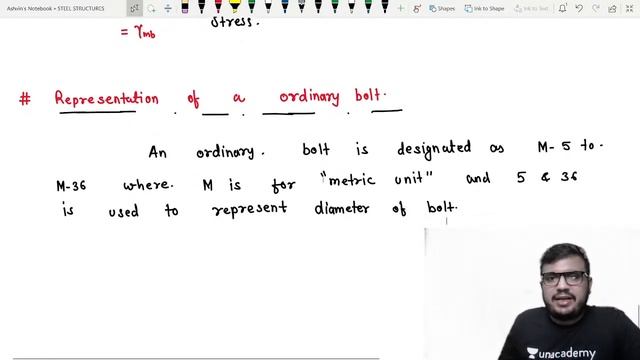 Ashvin's Notebook > STEEL STRUCTURCS
Shapes
Ink to Shape
Ink to Text
Stress.
= γmb
# Representation of a ordinary bolt.
An ordinary. bolt is designated as M-5 to.
M-36 where. M is for "metric unit" and 5 & 36
is used to represent diameter of bolt.
unacademy